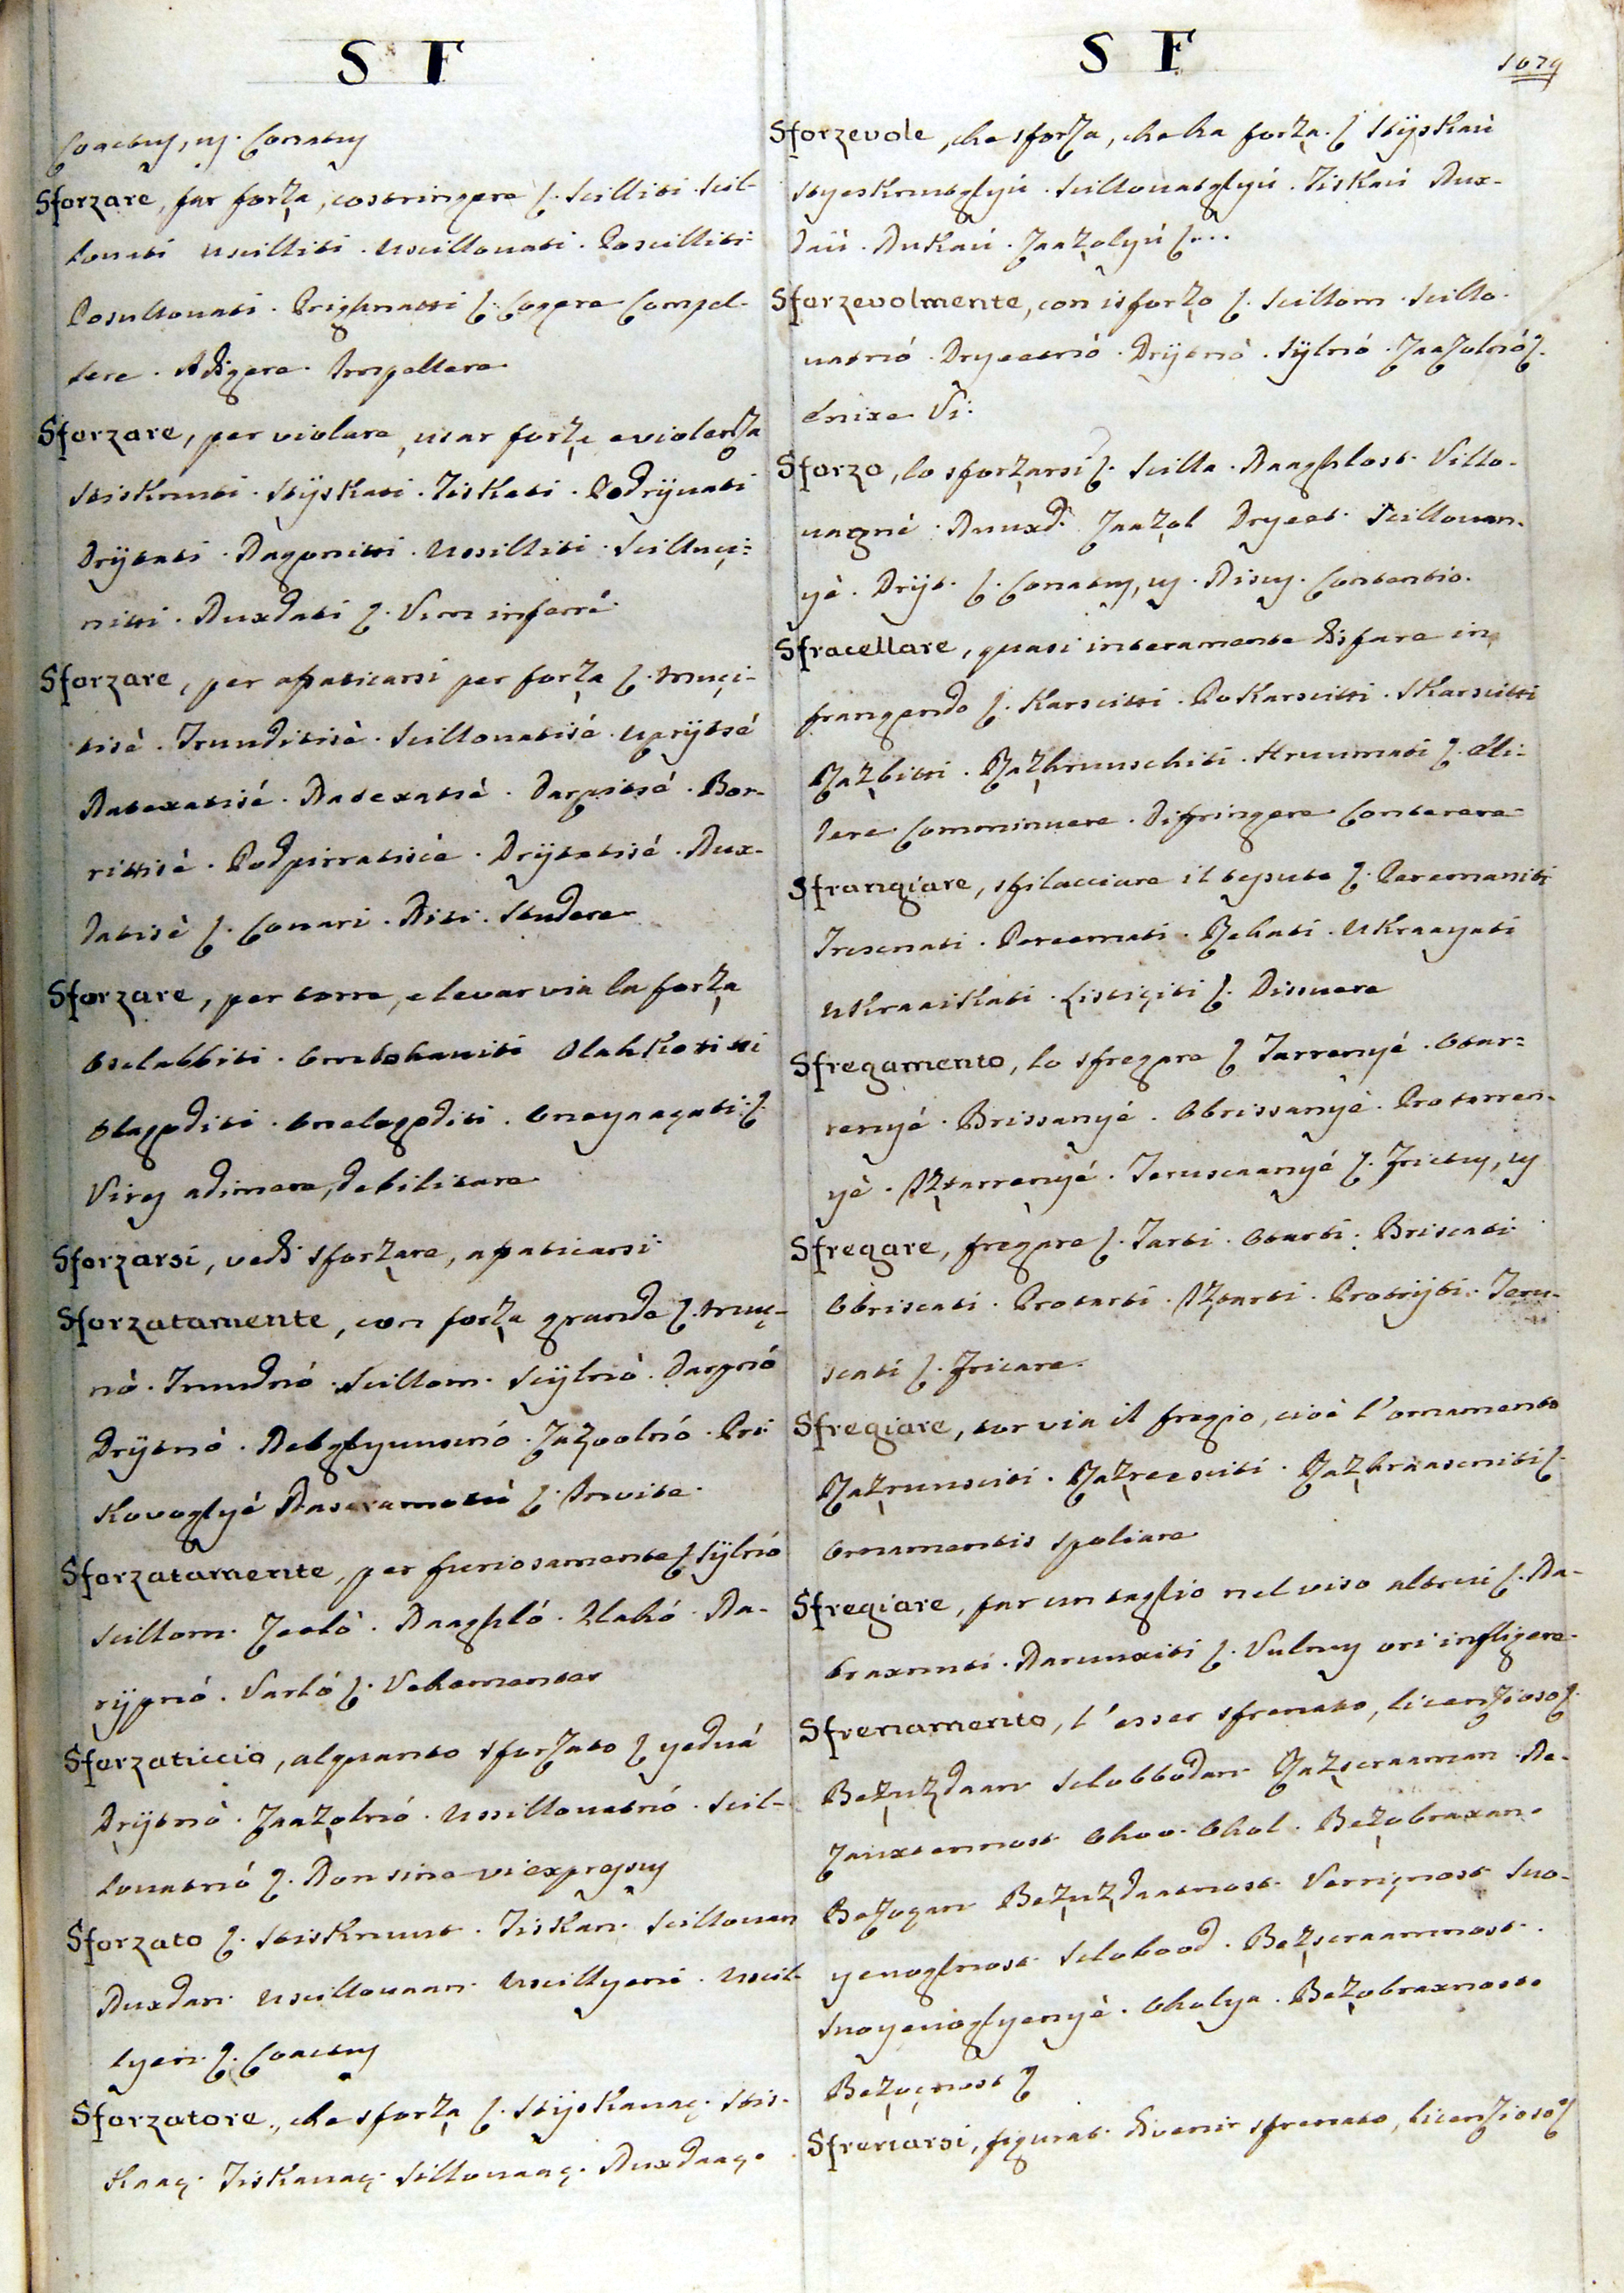 S F
Coactus, us. Conatus
Sforzare, far forza, costringere ſ. Scilliti. Scil-
lovati uscilliti. uscillovati. Poscilliti
Poscillovati. Prighnatti ſ. Cogere Compel-
lere. Adigere. Impellere
Sforzare, per violare, usar forza e violenza
Stisknuti. Stijskati. Tiskati. Podrijvati
Drijtati. Nagonitti. Ussilliti. Scilluçi-
nitti. Nuxdati ſ. Vim inferre
Sforzare, per afaticarsi per forza ſ. Muçi-
tisè. Truuditisè. Scillovatisé. uprijtsé
Natexatisé. Natexatsè. Darpitsé. Bor-
rittisè. Podpirratisèe. Drijtatisé. Nux-
datisè ſ. Conari. Niti. Studere
Sforzare, per torre, e levar via la forza
Oslabbiti. Omlohaviti Olahkotitti
Olagoditi. Onelagoditi. Oneyaaçati ſ.
Vires adimere, debilitare
Sforzarsi, vedi sforzare, afaticarsi
Sforzatamente, con forza grande ſ. Muç-
nò. Truudnó. Scillom. Scijlnò. Darpnó
Drijtnò. Nategljuusnó. Zazoolnó. Pri
Kovoglyé Nasaramotiè ſ. Invite.
Sforzatamente, per furiosamente ſ. Sijlnó
Scillom. Zeelò. Naaghló. Plahó. Na-
rijpnó. Varló ſ. Vehementer
Sforzaticcio, alquanto sforzato ſ yedvá
Drijtnò. Zaazolnó. Ussillovatnó. Scil-
lovatnó ſ. Non sine vi expressus
Sforzato ſ. Stisknuut. Tiskan. Scillovan
Nuxdan. uscillovaan. uscillyeni. uscil-
lyen. ſ. Coactus
Sforzatore, che sforza ſ. Stijskavaç. Stis-
kaaç. Tiskavaç. Sillovaaç. Nuxdaaç.
S F
1079
Sforzevole, che sforza, che ha forza. ſ Stijskaù
Styesknutglyú. Scillovatglyú. Tiskaú Nux-
daù. Nukaú. Zaazolyú ſ...
Sforzevolmente, con isforzo ſ. Scillom. Scillo-
vatnó. Dryeetnó. Drijtnò. Sijlnó. Zaazolnó ſ.
Enixe Vi.
Sforzo, lo sforzarsi ſ. Scilla. Naaghlost. Villo-
vagnè. Nuuxd. Zaazol Dryeet. Scillovan-
yè. Drijt. ſ. Conatus, us. Nisus. Contentio.
Sfracellare, quasi interamente disfare in
frangendo ſ. Karscitti. Pokarscitti. Skarscitti
Razbitti. Razkruuschiti. Hruumati ſ. Eli-
dere Comminuere. Difringere Conterere
Sfrangiare, sfilacciare il tessuto ſ. Peremaniti
Tresenati. Pereemati. Rehati. Ukraayati
Ukraaikati. Listiçiti ſ. Dissuere
Sfregamento, lo sfregare ſ Tarrenyé. Otar-
renyé. Brissanyé. Obrissanyè. Protarren-
yè. Iztarrenyé. Teruscaanyé ſ. Frictus, us
Sfregare, fregare ſ. Tarti. Otarti. Briscati
Obriscati. Protarti. Iztarti. Protrijti. Teru-
scati ſ. Fricare.
Sfregiare, tor via il fregio, cioè l'ornamento
Razrunsciti. Razreesciti. Razkraasniti ſ.
Ornamentis spoliare
Sfregiare, far un taglio nel viso altrui ſ. Na-
braxnuti. Naruuxiti ſ. Vulnus ori infligere
Sfrenamento, l'esser sfrenato, licenzioso ſ.
Bezuzdaan Slobbodan Razsraaman. Ne-
zauxtennost Ohoo Ohol. Bezobraxan.
Bezoçan Bezuzdaatnost Verriçnost Svo-
yevoglnost Slobood. Bezsraamnost.
Svoyevoglyenyè. Oholya. Bezobraxnost.
Bezoçnost ſ
Sfrenarsi, figurat. divenir sfrenato, licenzioso ſ